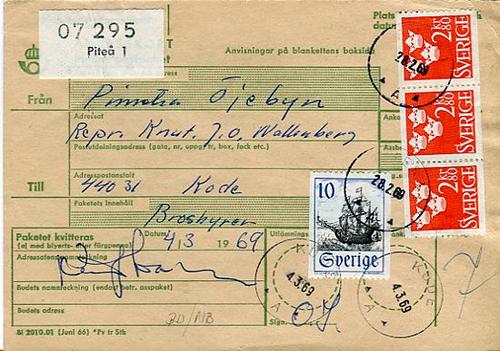 07 295
Piteå 1
Anvisningar på blankettens baksida
Plats
2 KR 80
SVERIGE
2 KR 80
SVERIGE
2 KR 80
SVERIGE
26.2.69
A
26.2.69
Från
Öjebyn
Adressat
Repr. Knut, J.O. Wallenberg
Postutdelningsadress (gata, nr, uppg/tr, box, fack etc.)
Till
Adresspostanstalt
440 31 Kode
Paketets innehåll
Broschyrer
10
Sverige
Paketet kvitteras
(ej med blyerts- el färgpenna)
Datum
4/3 1969
Utlämning
Adressatens namnteckning
Budets namnteckning (endast betr. asspaket)
Budets adress
Sign.
KODE
4.3.69
A
KODE
4.3.69
A
Bl 2010.01 (Juni 66) *Pv tr Sth